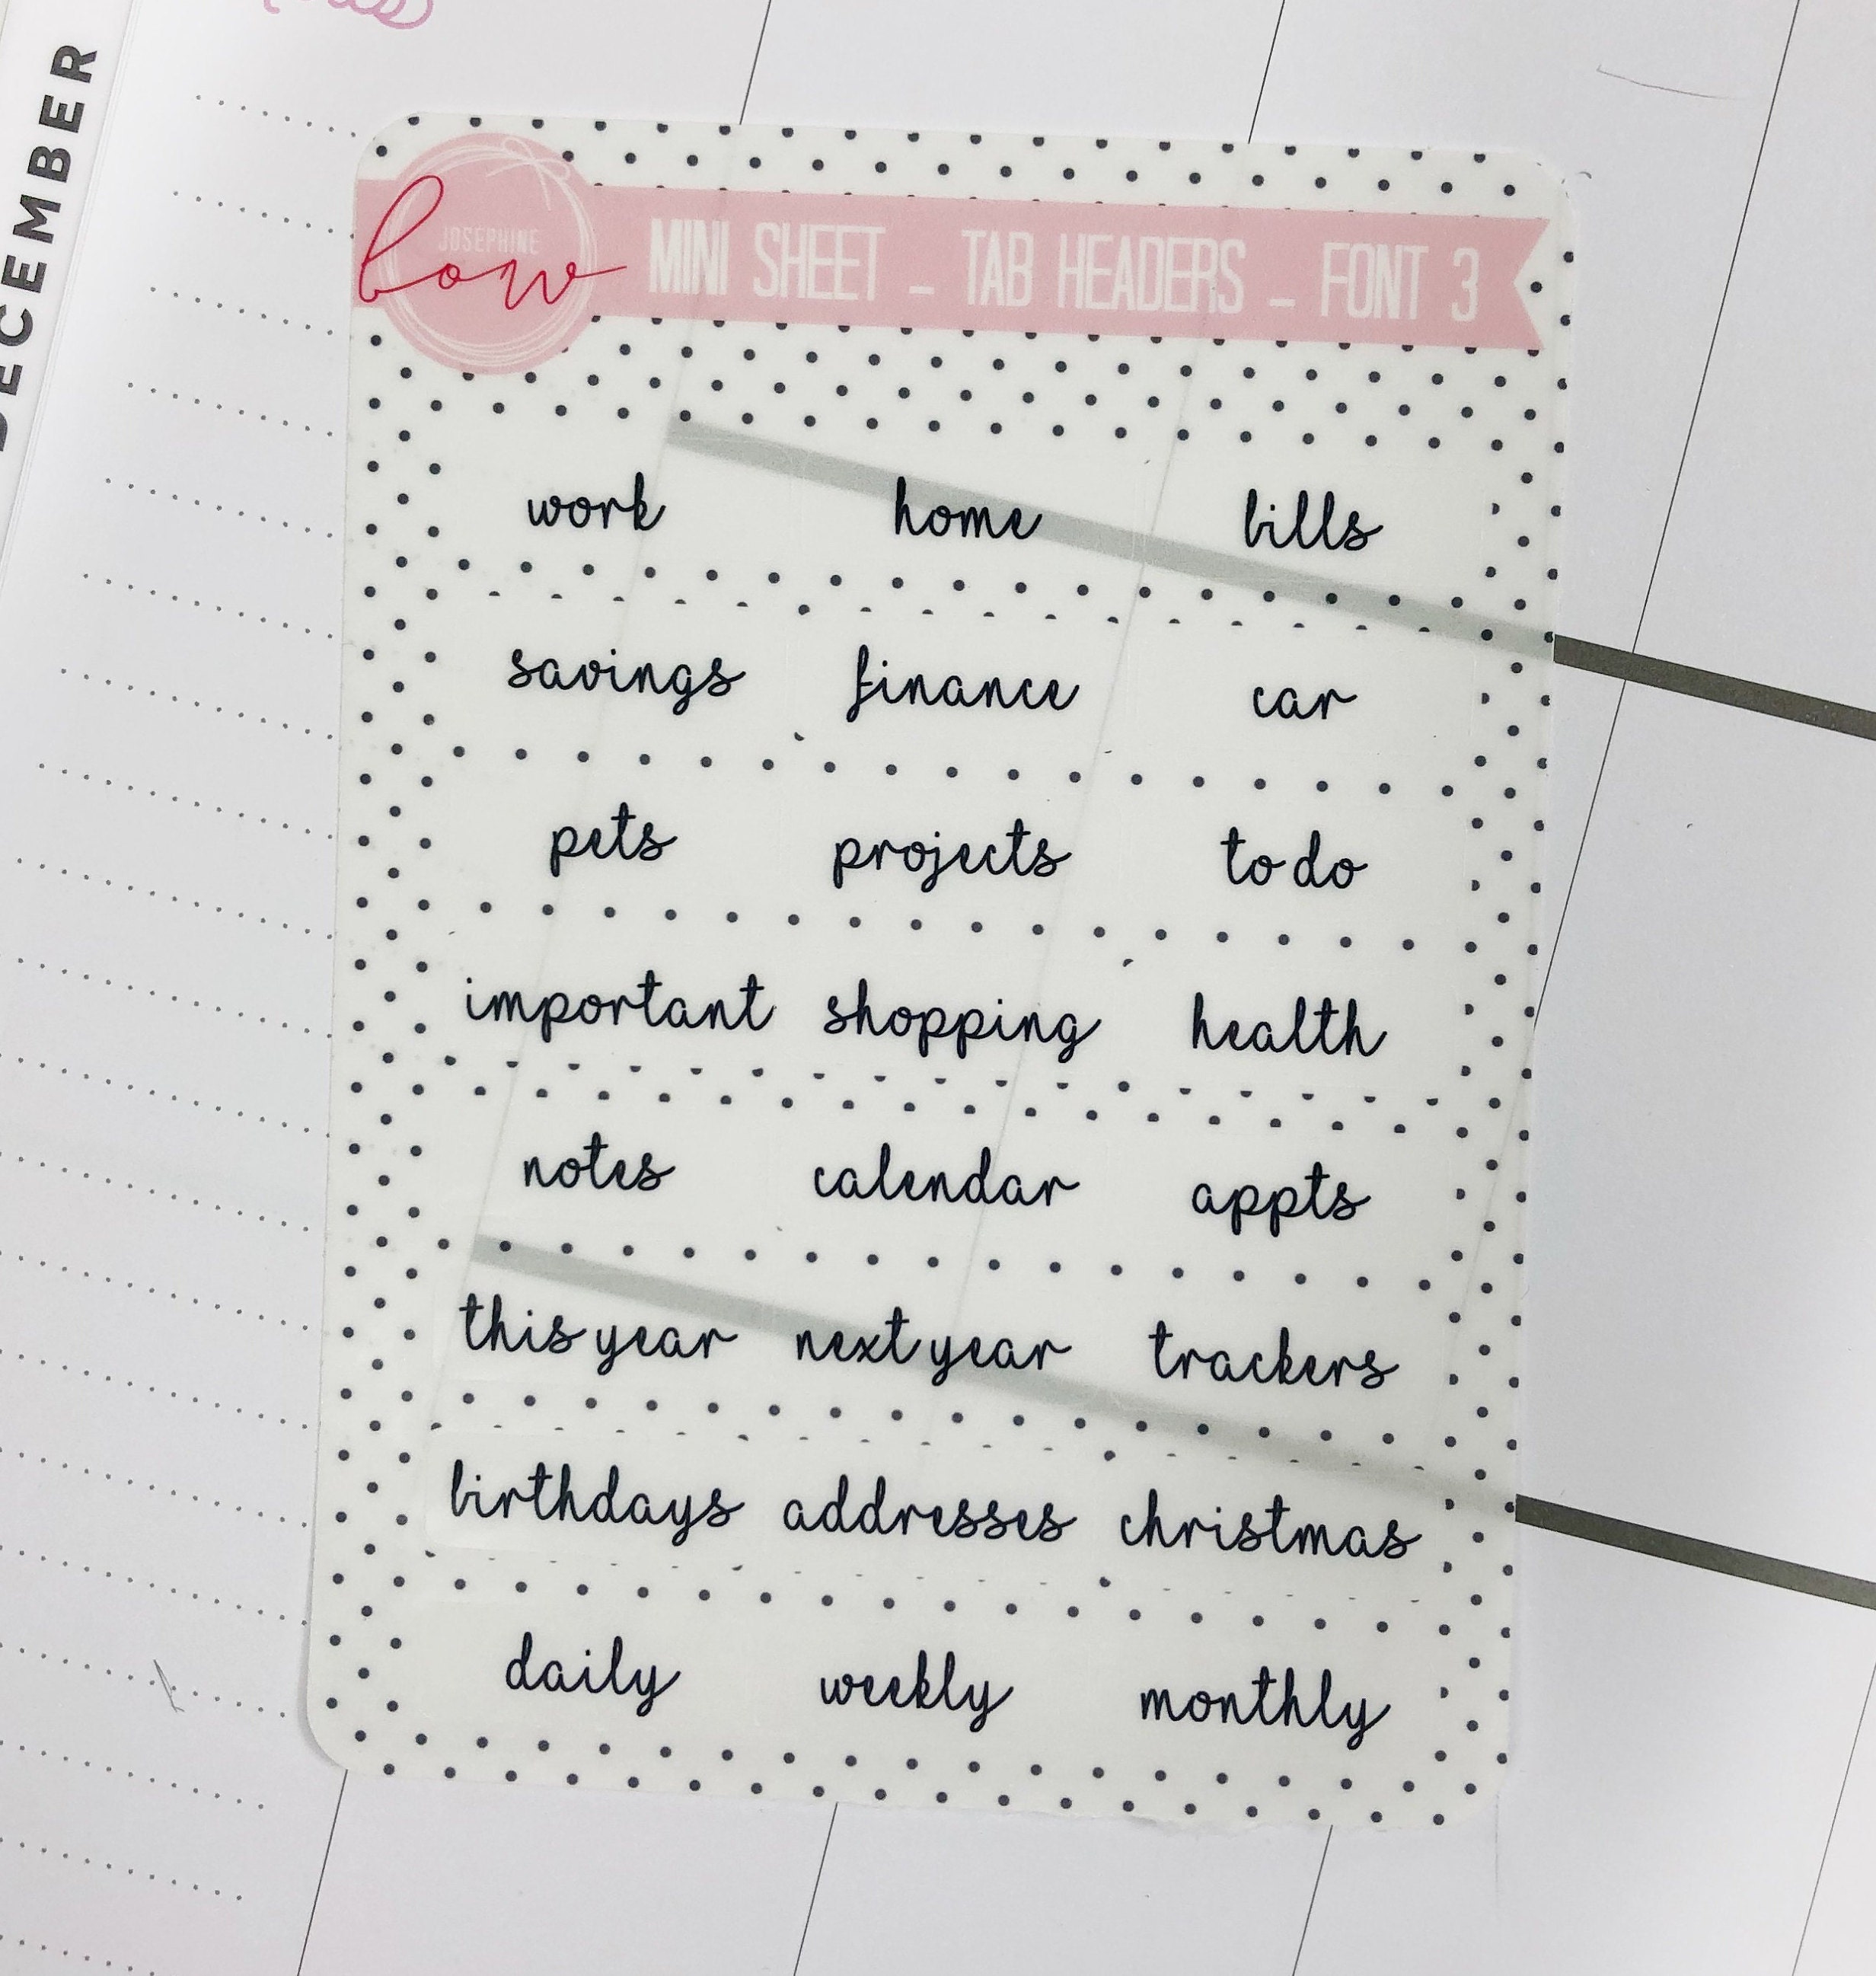 DECEMBER
JOSEPHINE
bow
MINI SHEET - TAB HEADERS - FONT 3
work home bills
savings finance car
pets projects to do
important shopping health
notes calendar appts
this year next year trackers
birthdays addresses christmas
daily weekly monthly